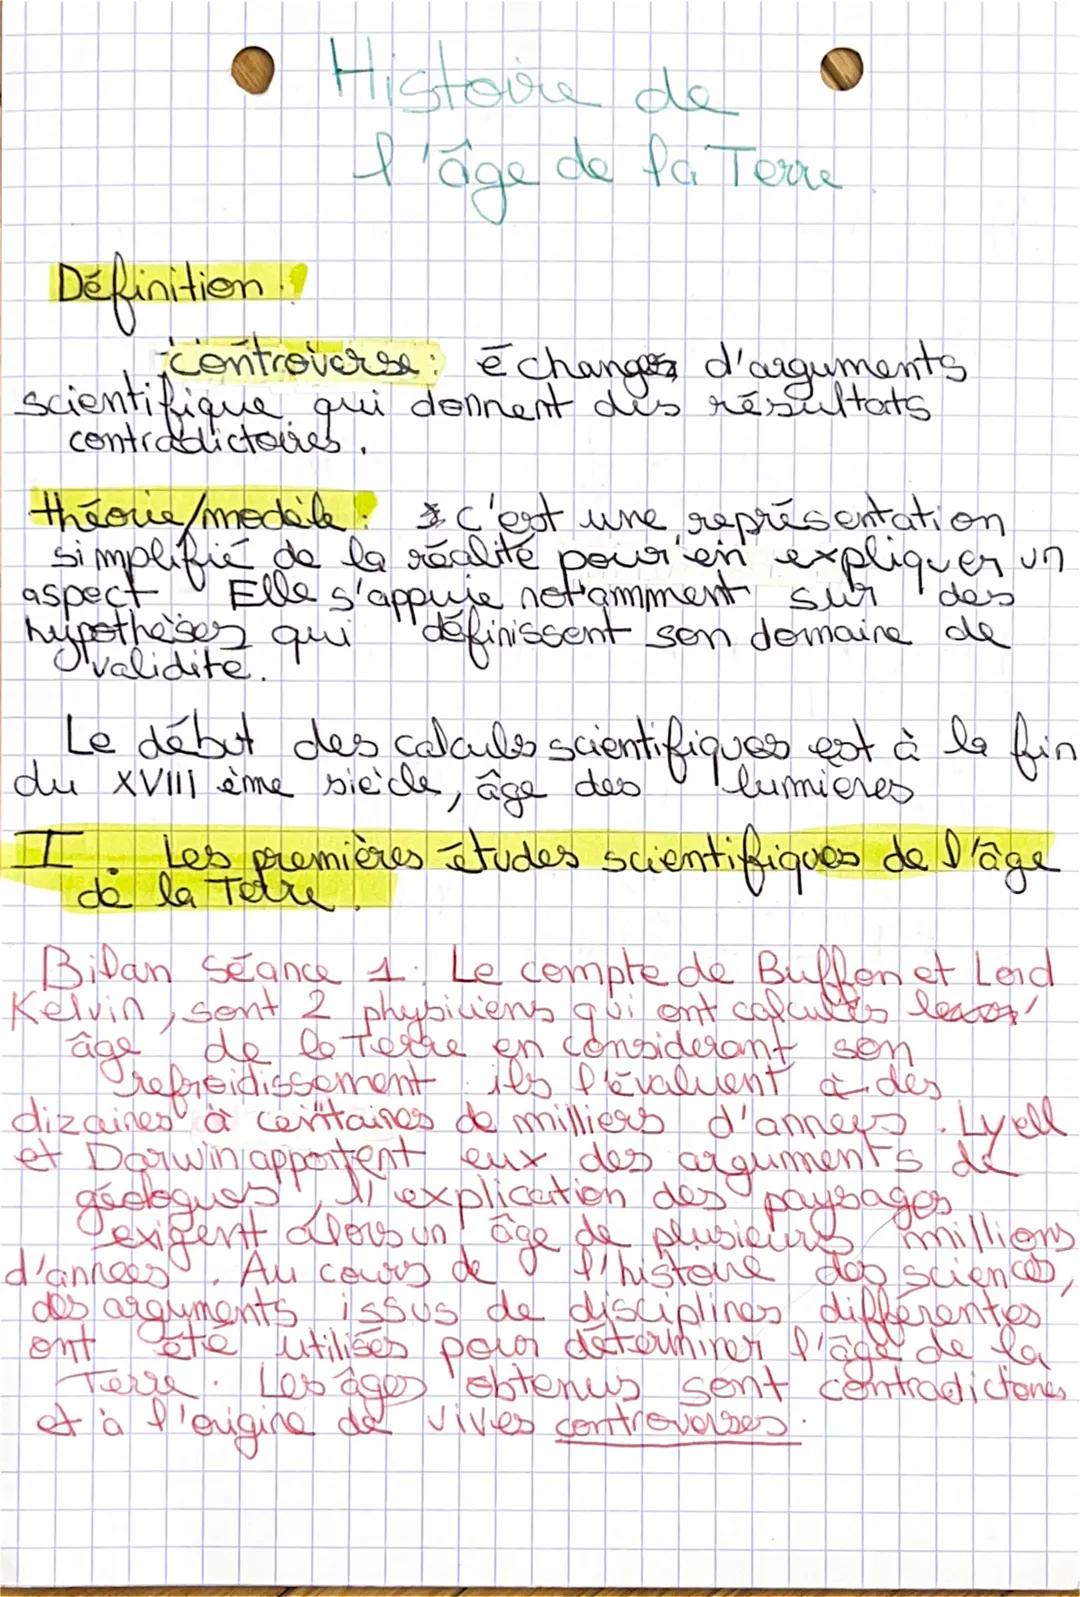 Histoire de
l'âge de la Terre
Définition :
controverse : échanges d'arguments
scientifique qui donnent des résultats
contradictoires.
théorie/modèle : c'est une représentation
simplifié de la réalité pour en expliquer un
aspect Elle s'appuie notamment sur des
hypothèses qui définissent son domaine de
validité.
Le début des calculs scientifiques est à la fin
du XVIII ème siècle, âge des lumières
I. Les premières études scientifiques de l'âge
de la Terre.
Bilan séance 1. Le compte de Buffon et Lord
Kelvin, sont 2 physiciens qui ont calculés
âge de la Terre en considérant son
refroidissement ils l'évaluent à des
dizaines à centaines de milliers d'années. Lyell
et Darwin apportent eux des arguments de
géologues, l'explication des paysages
exigent alors un âge de plusieurs millions
d'années. Au cours de l'histoire des sciences,
des arguments issus de disciplines différentes
ont été utilisés pour déterminer l'âge de la
Terre. Les âges obtenus sont contradictoires
et à l'origine de vives controverses.